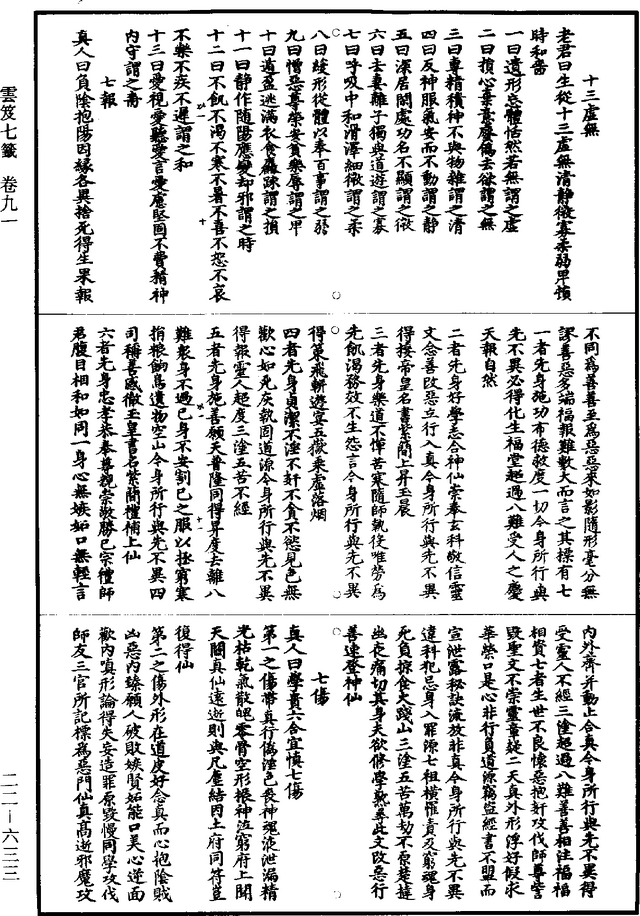 十三虛無
老君曰生從十三虛無清靜微寡柔弱卑損
時和嗇
一曰遺形忘體恬然若無謂之虛
二曰損心棄意廢偽去欲謂之無
三曰專精積神不與物雜謂之清
四曰反神服氣安而不動謂之靜
五曰深居閑處功名不顯謂之微
六曰去妻離子獨與道遊謂之寡
七曰呼吸中和滑澤細微謂之柔
八曰緩形從體以奉百事謂之弱
九曰憎惡尊榮安貧樂辱謂之卑
十曰遁盈逃滿衣食麤疎謂之損
十一曰靜作隨陽應變却邪謂之時
十二曰不飢不渴不寒不暑不喜不怒不哀
不樂不疾不遲謂之和
十三曰愛視愛聽愛言愛慮堅固不費精神
內守謂之嗇
七報
真人曰負陰抱陽因緣各異捨死得生果報
不同為善善至為惡惡來如影隨形毫分無
謬善惡多端福報難數大而言之其標有七
一者先身施功布德救度一切今身所行與
先不異必得化生福堂超過八難受人之慶
天報自然
二者先身好學志合神仙崇奉玄科敬信靈
文念善改惡立行入真今身所行與先不異
得接帝皇名書紫簡上昇玉晨
三者先身樂道不憚苦寒隨師執役唯勞為
先飢渴務效不生怨言今身所行與先不異
得策飛軿遊宴五嶽乘虛落烟
四者先身貞潔不淫不奸不貪不慾見色無
歡心如死灰執固道源今身所行與先不異
得報靈人超度三塗五苦不經
五者先身施善願天普隆同得昇度去離八
難衆身不過己身不安割己之服以拯窮寒
損粮飴鳥遺物空山今身所行與先不異四
司稱善感徹玉皇書名紫簡禮補上仙
六者先身忠孝恭奉尊親崇敬勝己宗禮師
君腹目相和如同一身心無嫉妬口無輕言
內外齊并動止合真今身所行與先不異得
受靈人不經三塗超過八難善善相注福福
相資七者生世不良懷惡抱奸攻伐師尊訾
毀聖文不崇靈章疑二天真外形浮好假求
華榮口是心非行負道源竊盜經書不盟而
宣泄露秘訣流放非真今身所行與先不異
違科犯忌身入罪源七祖橫罹責及窮魂身
死負掠食火踐山三塗五苦萬劫不原楚撻
幽夜痛切其身夫欲修學熟尋此文改惡行
善速登神仙
七傷
真人曰學貴六合宜慎七傷
第一之傷帶真行偽淫色喪神魂液泄漏精
光枯乾氣散魄零骨空形振神泣窮府上聞
天關真仙遠逝則與凡塵結因土府同符豈
復得仙
第二之傷外形在道皮好念真而心抱陰賊
凶惡內臻願人破敗嫉賢妬能口美心逆面
歡內嗔形論得失妄造罪原毀慢同學攻伐
師友三官所記標為惡門仙真高逝邪魔攻
雲笈七籤　卷九一
二二—六三三